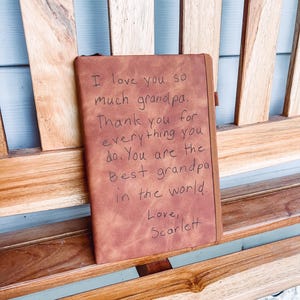 I love you so
much grandpa.
Thank you for
everything you
do. You are the
Best grandpa
in the world
Love,
Scarlett